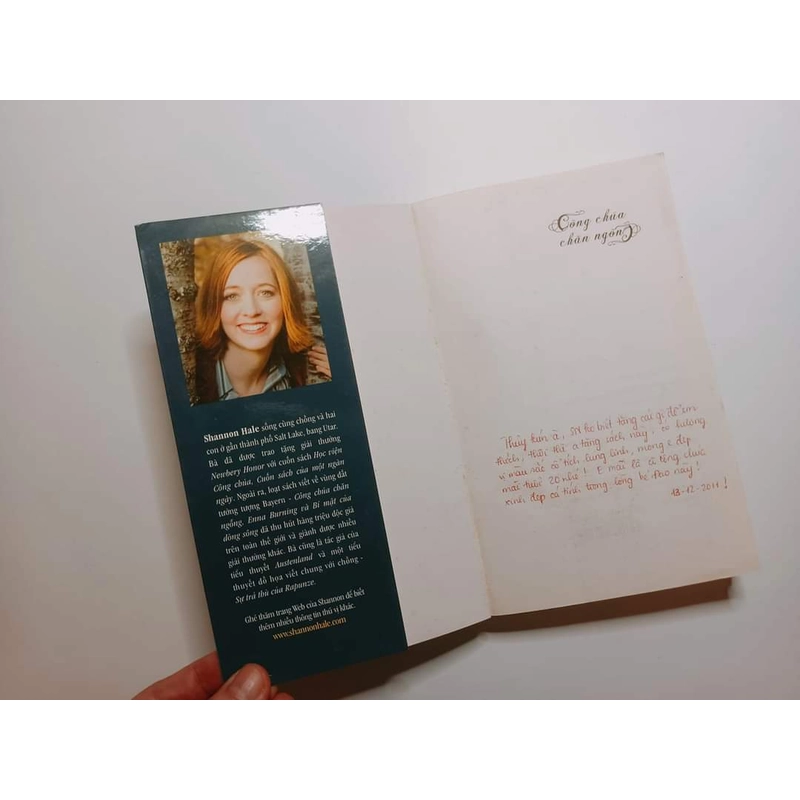 Shannon Hale sống cùng chồng và hai
con ở gần thành phố Salt Lake, bang Utar.
Bà đã được trao tặng giải thưởng
Newbery Honor với cuốn sách Học viện
Công chúa, Cuốn sách của một ngàn
ngày. Ngoài ra, loạt sách viết về vùng đất
tưởng tượng Bayern - Công chúa chăn
ngỗng, Enna Burning và Bí mật của
dòng sông đã thu hút hàng triệu độc giả
trên toàn thế giới và giành được nhiều
giải thưởng khác. Bà cũng là tác giả của
tiểu thuyết Austenland và một tiểu
thuyết đồ họa viết chung với chồng -
Sự trả thù của Rapunze.
Ghé thăm trang Web của Shannon để biết
thêm nhiều thông tin thú vị khác.
www.shannonhale.com
Công chúa
chăn ngỗng
Thủy bún à, SN ko biết tặng cái gì để em
thích, thôi thì a tặng sách này, có tường
vi màu sắc cổ tích, lung linh, mong e đẹp
mãi tuổi 20 nhé! E mãi là cô công chúa
xinh đẹp cá tính trong lòng
18-12-2011!